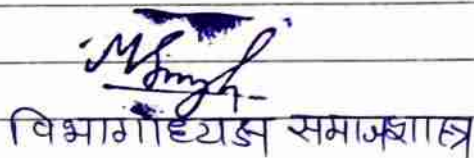 MSingh
विभागाध्यक्ष समाजशास्त्र